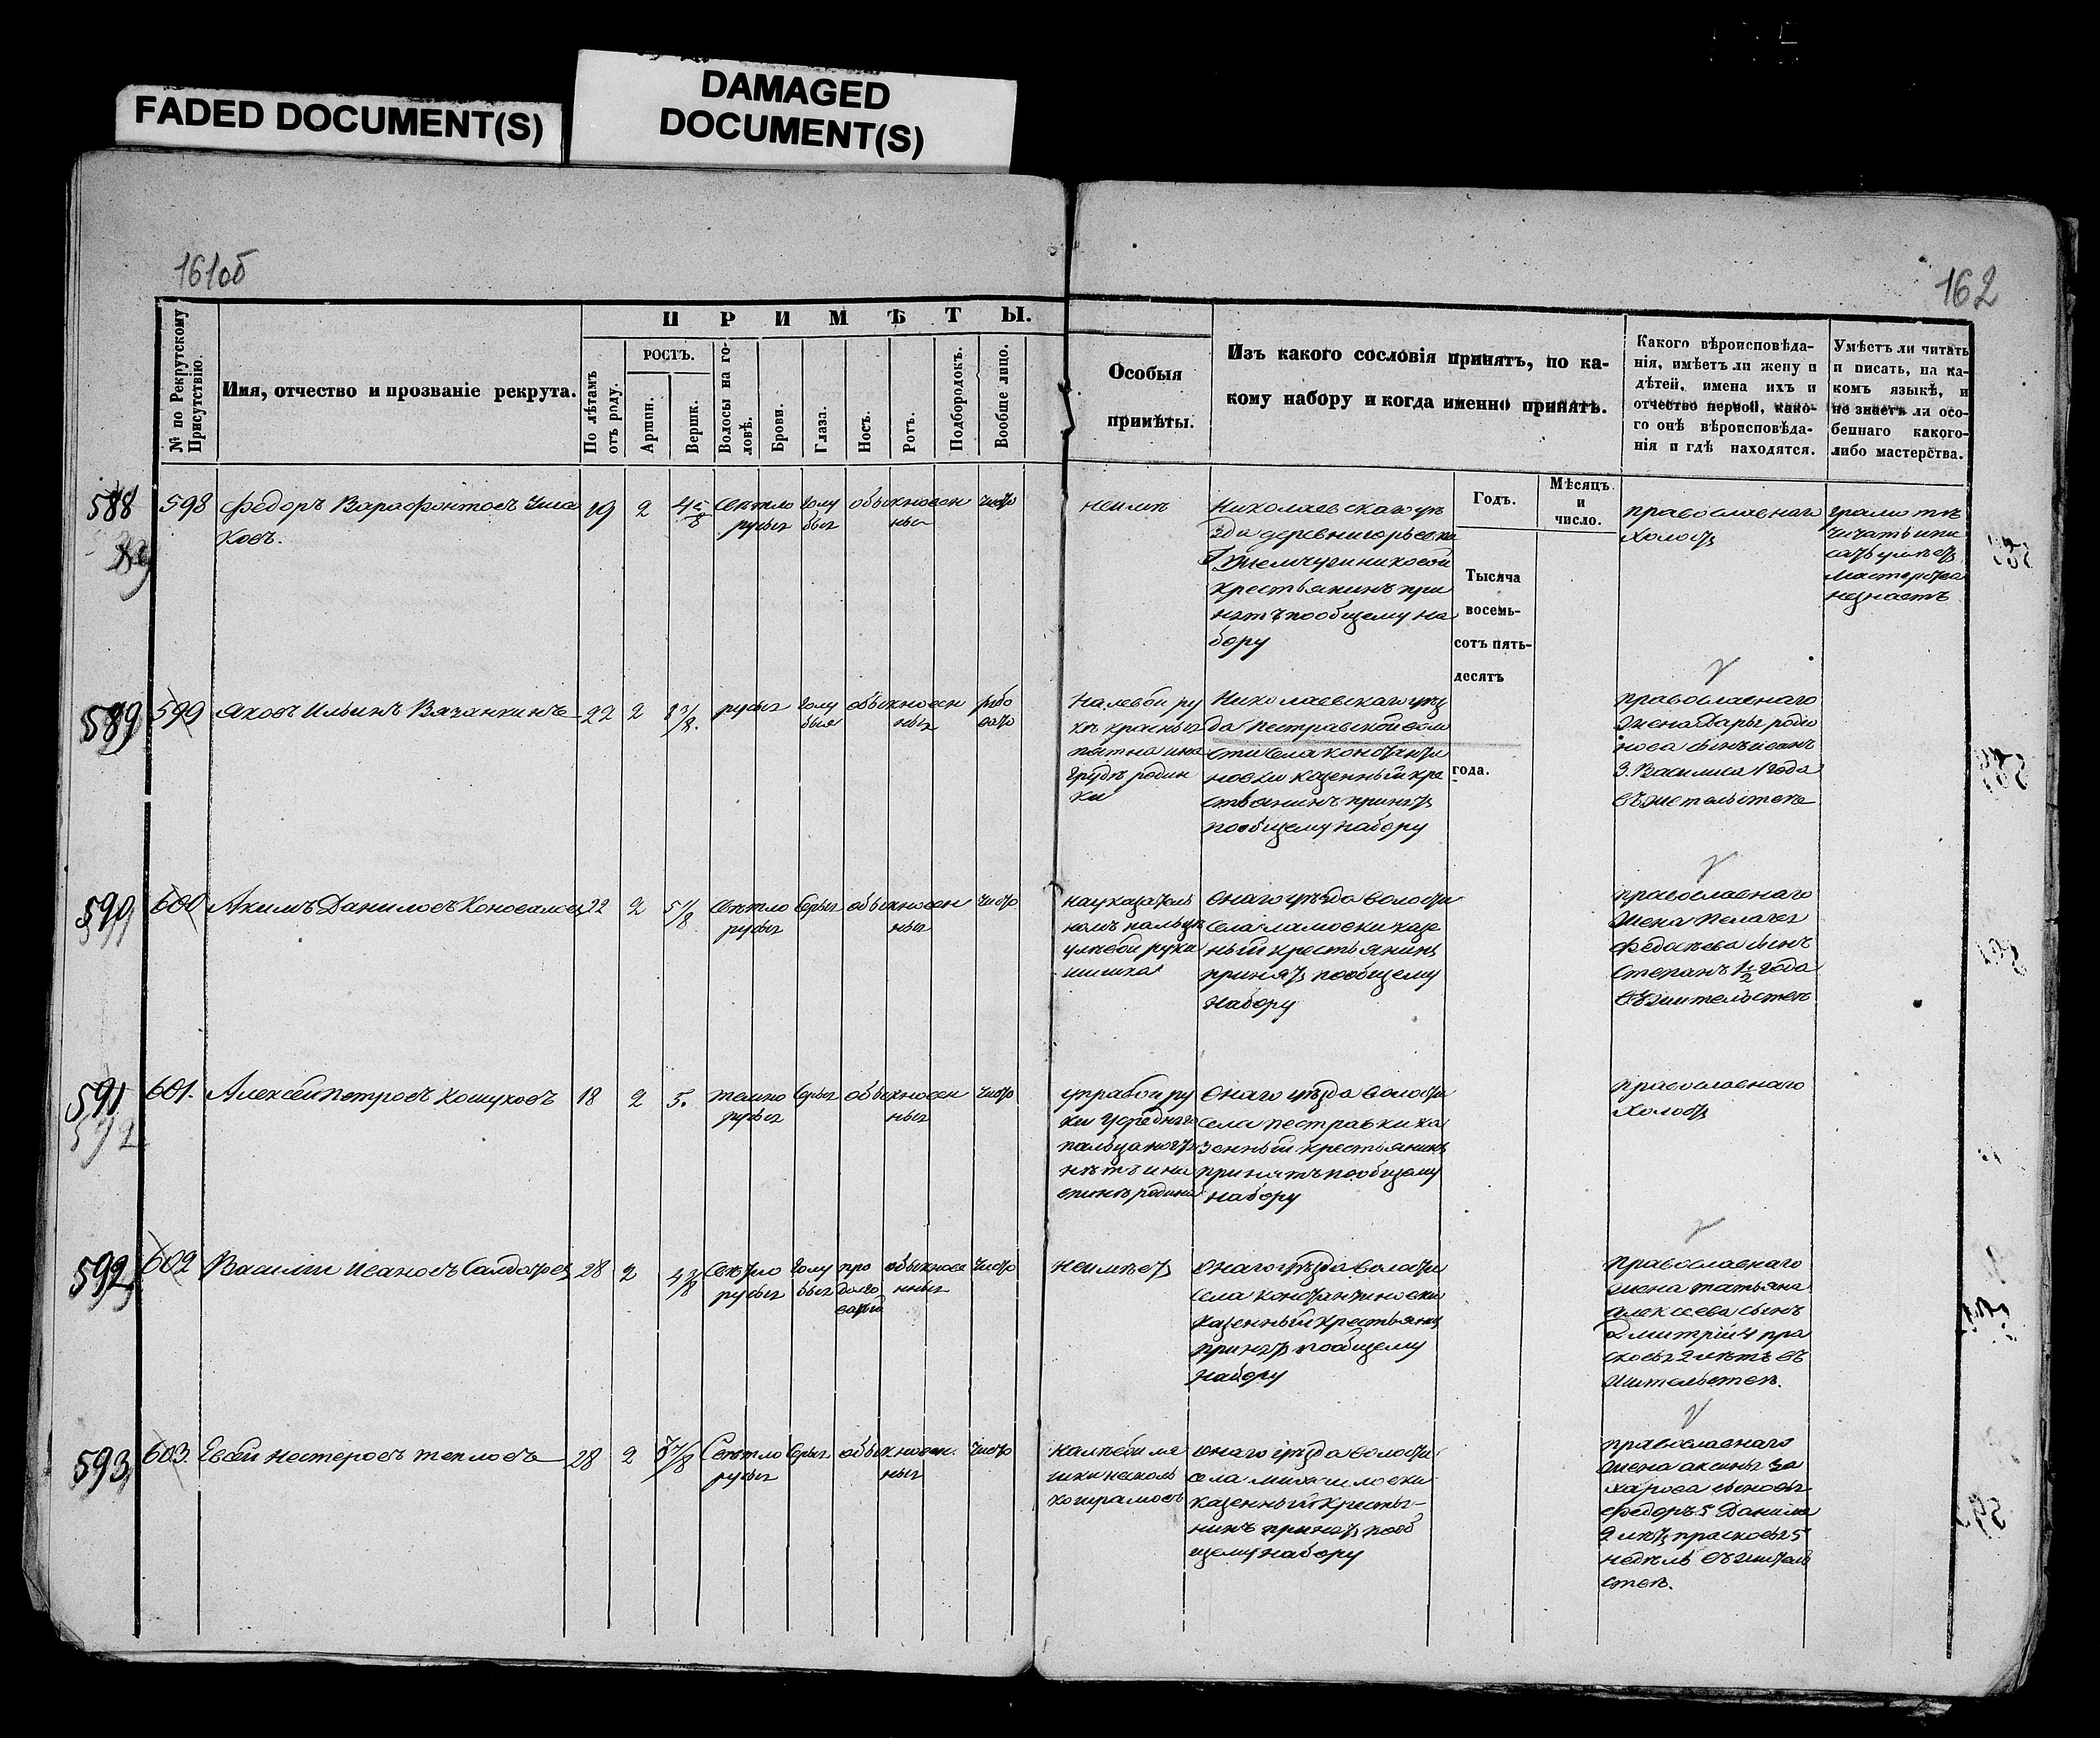 FADED DOCUMENT(S)
DAMAGED
DOCUMENT(S)
161об
162
№ по Рекрутскому
Присутствію.
Имя, отчество и прозваніе рекрута.
ПРИМѢТЫ.
По лѣтамъ
отъ роду.
РОСТЪ.
Аршин.
Вершк.
Волосы на го-
ловѣ.
Брови.
Глаза.
Носъ.
Ротъ.
Подбородокъ.
Вообще лицо.
Особыя
примѣты.
Изъ какого сословія принятъ, по ка-
кому набору и когда именно принятъ.
Какого вѣроисповѣда-
нія, имѣетъ ли жену и
дѣтей, имена ихъ и
отчество первой, како-
го онѣ вѣроисповѣда-
нія и гдѣ находятся.
Умѣетъ ли читать
и писать, на ка-
комъ языкѣ, и
не знаетъ ли осо-
беннаго какого-
либо мастерства.
Годъ.
Мѣсяцъ
и
число.
Тысяча
восемь-
сотъ пять-
десятъ
года.
588
598
Федоръ Варафонтовъ Уша
ковъ.
19
2
Свѣтло
русыя
голу
быя
обыкновен
ныя
чисто
неимѣ
Николаевскаго уѣ
зда деревни
крестьянинъ при
нятъ по общему на
бору
православнаго
холостъ
грамотѣ
читать и пи
сать умѣетъ
мастерства
незнаетъ
589
599
Яковъ Ильинъ Вязанкинъ
22
2
русыя
голу
быя
обыкновен
ныя
рябо
вато
На левой ру
кѣ красныя
пятна и на
грудѣ родин
ки
Николаевскаго уѣз
да Пестравской воло
сти села Константи
новки казенный кре
стьянинъ принятъ
по общему набору
православнаго
жена Дарья Родио
нова сынъ Иванъ
3. Василиса 1 года
въ жительстве
590
600
Акимъ Даниловъ Коноваловъ
22
2
5 1/8
Свѣтло
русыя
серыя
обыкновен
ныя
чисто
на указатель
номъ пальцѣ
у лѣвой руки
шишка
Онаго уѣзда волости
села Ламовки казе
ный крестьянинъ
принятъ по общему
набору
православнаго
жена Пелагея
сынъ
Степанъ 1 1/2 года
въ жительствѣ
591
601.
Алексей Петровъ Кошуковъ
18
2
5.
темно
русыя
серыя
обыкновен
ныя
чисто
у правой ру
ки у средняго
пальца ногтя
нѣтъ и на
спинѣ родина
Онаго уѣзда волости
села Пестравки ка
зенный крестьянинъ
принятъ по общему
набору
православнаго
холостъ
592
602
Василій Ивановъ Салдатовъ
28
2
Свѣтло
русыя
голу
быя
про
долго
ватой
обыкнове
нныя
чисто
неимѣетъ
Онаго уѣзда волости
села Константиновки
казенный крестьянинъ
принятъ по общему
набору
православнаго
жена Татьяна
Алексеева сынъ
Дмитрій 4 Пра
сковья 2 лѣтъ въ
жительствѣ.
593
603.
Евсей Нестеровъ Тепловъ
28
2
Свѣтло
русыя
серыя
обыкновен.
ныя
чисто
на лѣвой ля
шки несколь
ко шрамовъ
Онаго уѣзда волости
села Михайловки
казенный крестья-
нинъ принятъ по об
щему набору
православнаго
жена Аксинья За
харова сыновья
Федоръ 5 Данила
2 лѣтъ Прасковья 5
недѣль въ житель
ствѣ.